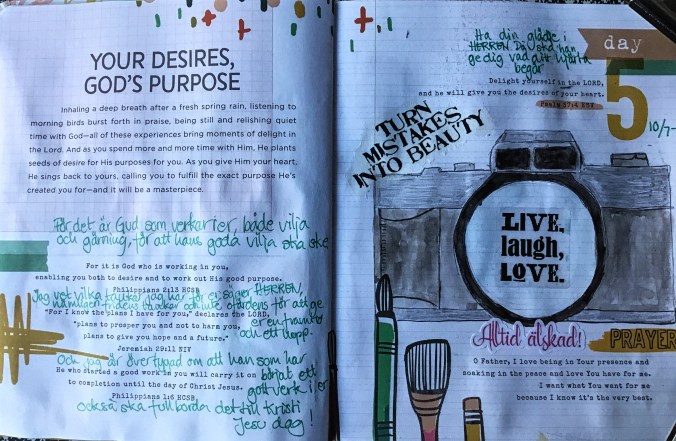 YOUR DESIRES,
GOD'S PURPOSE
Inhaling a deep breath after a fresh spring rain, listening to
morning birds burst forth in praise, being still and relishing quiet
time with God—all of these experiences bring moments of delight in
the Lord. And as you spend more and more time with Him, He plants
seeds of desire for His purposes for you. As you give Him your heart,
He sings back to yours, calling you to fulfill the exact purpose He's
created you for—and it will be a masterpiece.
För det är Gud som verkar i er, både vilja
och gärning, för att hans goda vilja ska ske
For it is God who is working in you,
enabling you both to desire and to work out His good purpose.
Philippians 2:13 HCSB
Jag vet vilka tankar jag har för er, säger HERREN,
"For I know the plans I have for you," declares the LORD,
"plans to prosper you and not to harm you,
er en framtid
plans to give you hope and a future."
och ett hopp.
Jeremiah 29:11 NIV
Och jag är övertygad om att han som har
He who started a good work in you will carry it on
börjat ett
to completion until the day of Christ Jesus.
gott verk i er
Philippians 1:6 HCSB
också ska fullborda det till Kristi
Jesu dag!
Ha din glädje i
HERREN. Då ska han
ge dig vad ditt hjärta
begär
day
5
10/7-
Delight yourself in the LORD,
and he will give you the desires of your heart.
Psalm 37:4
TURN
MISTAKES
INTO BEAUTY
LIVE,
laugh,
LOVE.
Alltid älskad!
PRAYER
O Father, I love being in Your presence and
soaking in the peace and love You have for me.
I want what You want for me
because I know it's the very best.